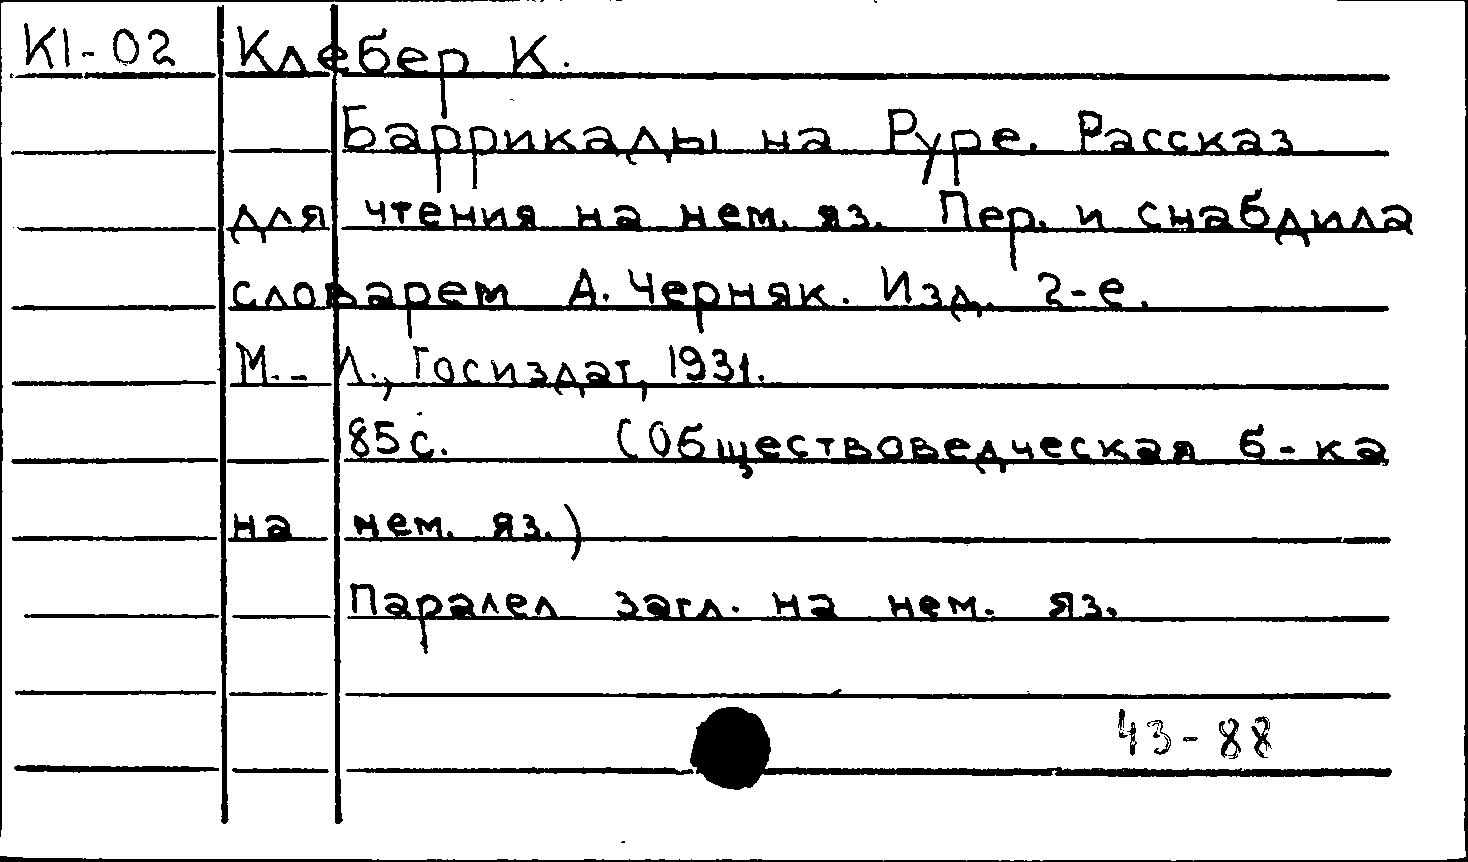 К1-02 Клебер К.
Баррикады на Руре. Рассказ
для чтения на нем. яз. Пер. и снабдила
словарем А. Черняк. Изд. 2-е.
М.-Л., Госиздат, 1931.
85с. (Обществоведческая б-ка
на нем. яз.)
Паралел загл. на нем. яз.
43-88